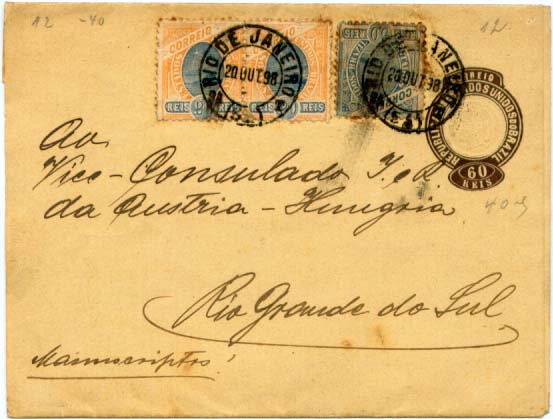 12 -40
12
CORREIO
REIS 20
REIS
RIO DE JANEIRO
20 OUT. 98
50 REIS
RIO DE JANEIRO
20 OUT 98
CORREIO
REPUBLICA DOS ESTADOS UNIDOS DO BRAZIL
60
REIS
Ao
Vice-Consulado I. e R.
da Austria-Hungria
Rio Grande do Sul
Manuscriptos!